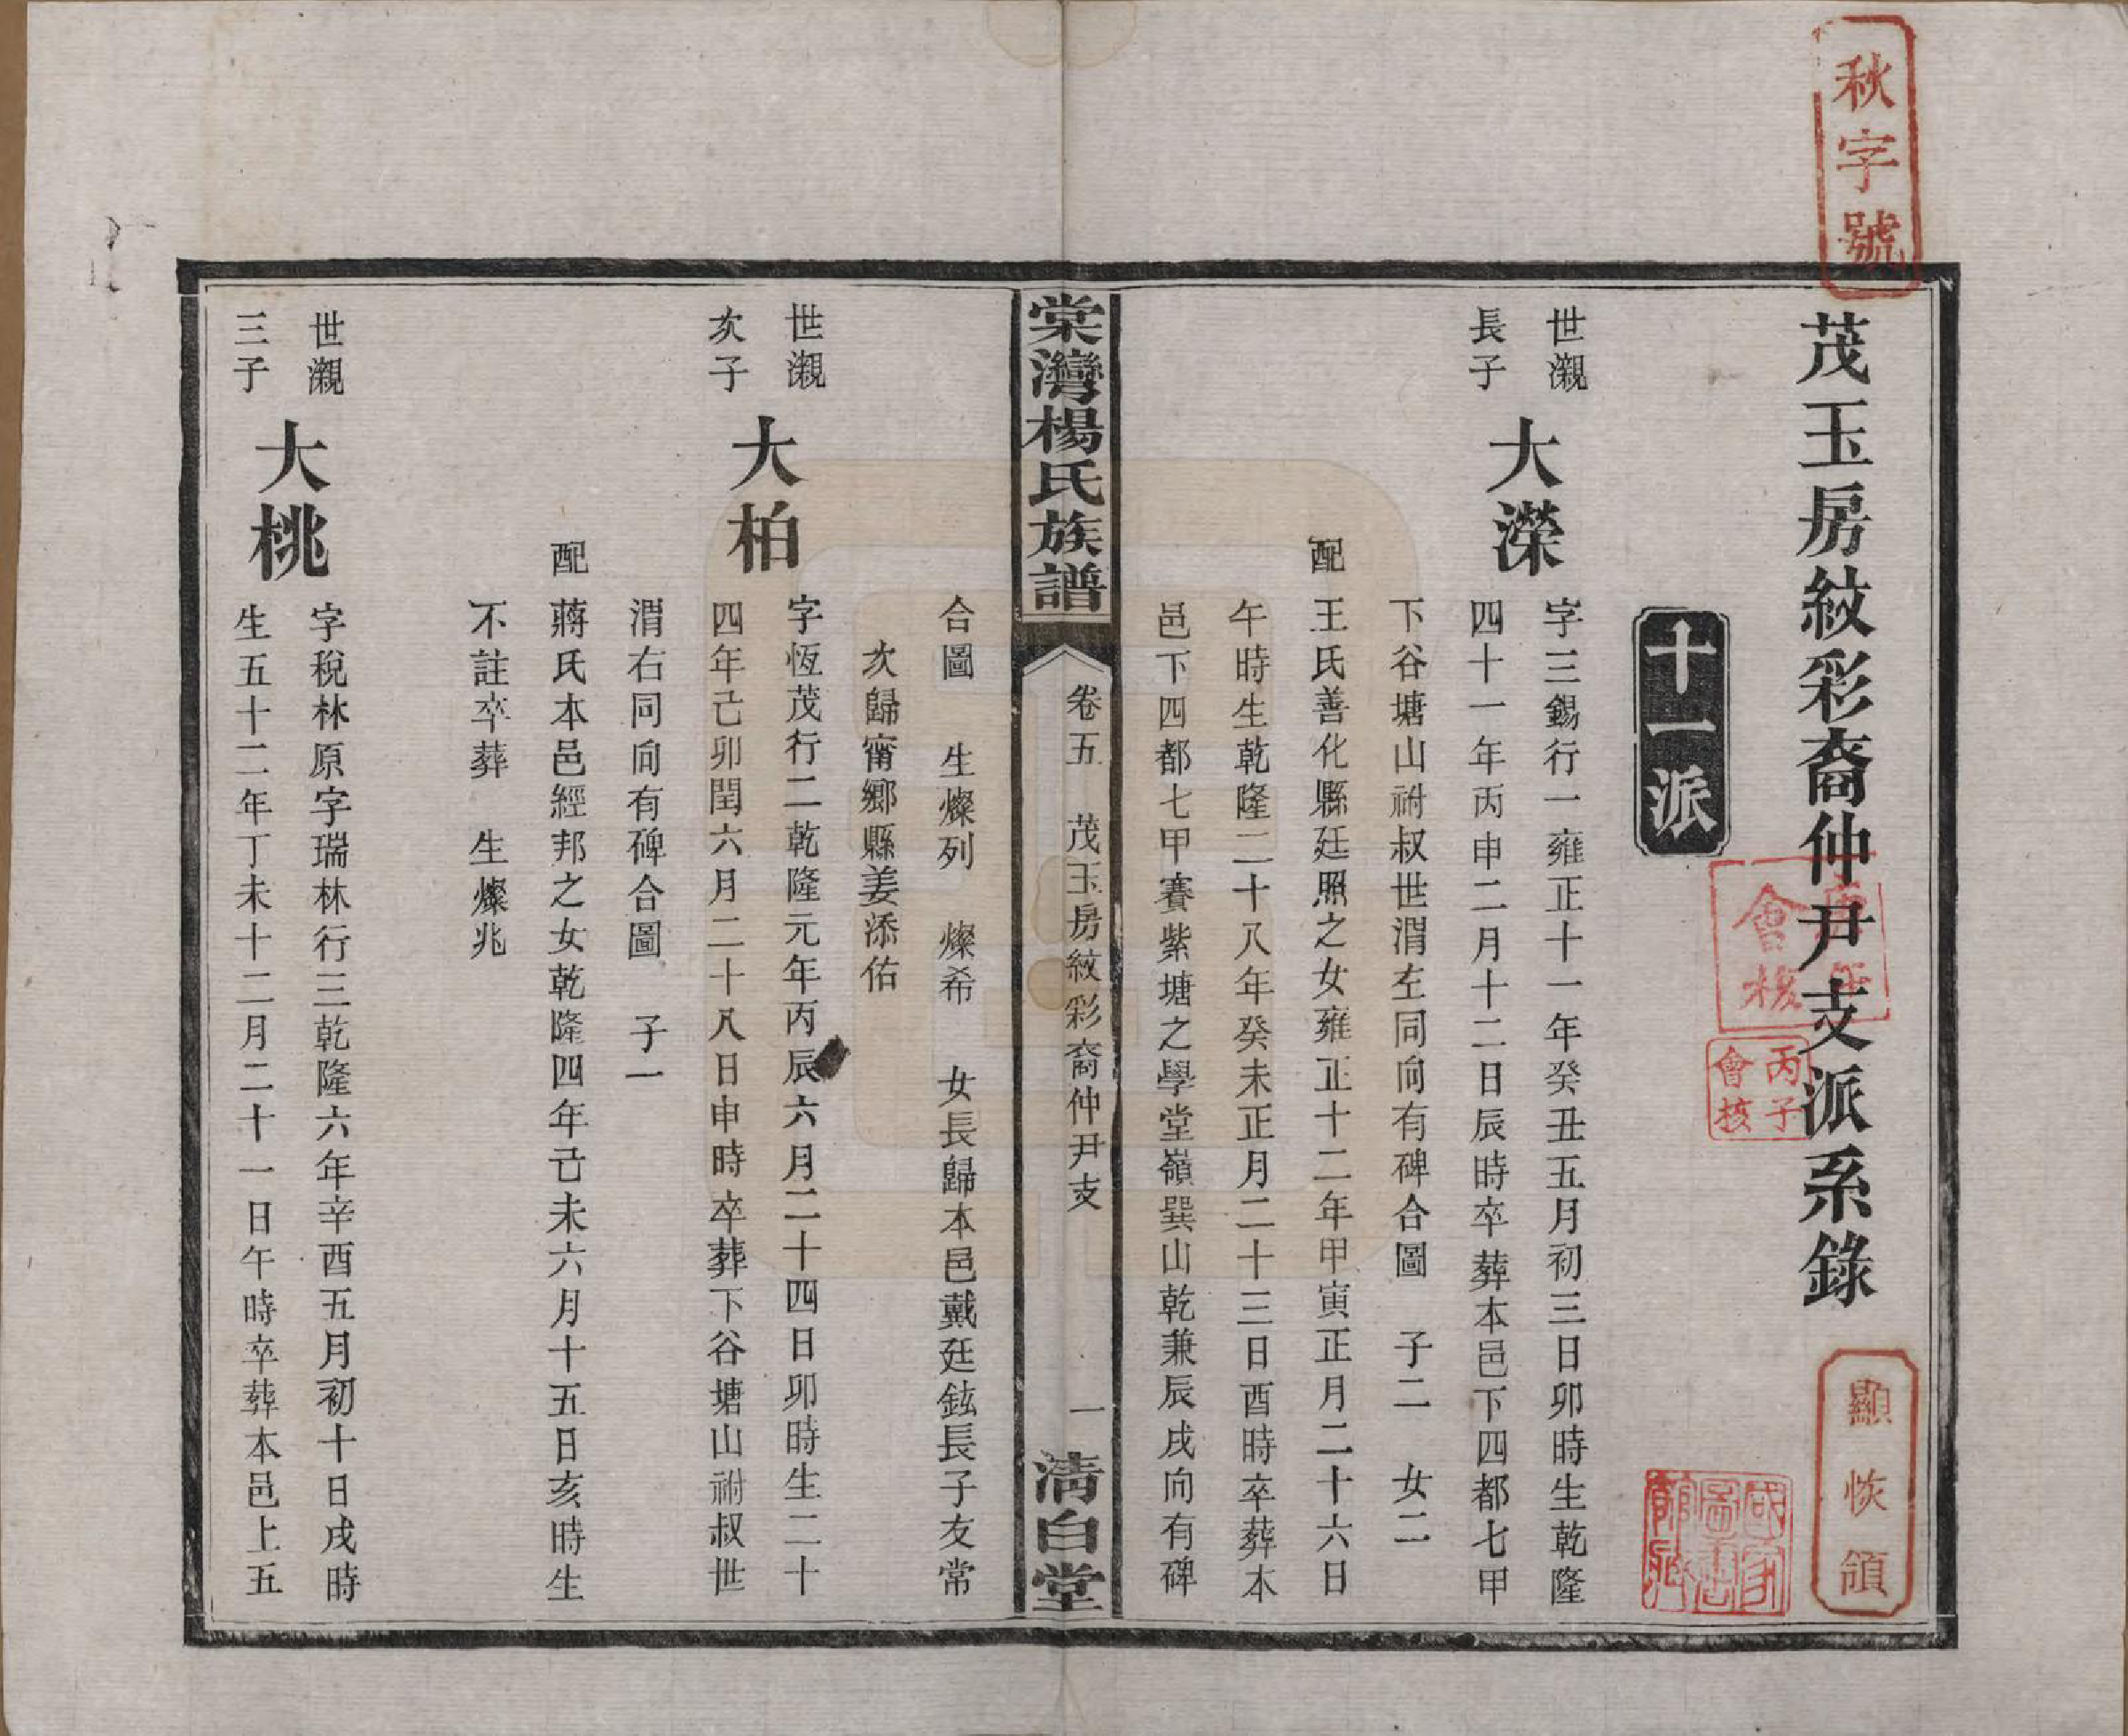 秋字號
茂玉房紋彩裔仲尹支派系錄
顯恢領
會核
丙子會核
國家圖書館藏
十一派
世瀙長子
大濚
字三錫行一雍正十一年癸丑五月初三日卯時生乾隆
四十一年丙申二月十二日辰時卒葬本邑下四都七甲
下谷塘山祔叔世渭左同向有碑合圖 子二 女二
配
王氏善化縣廷照之女雍正十二年甲寅正月二十六日
午時生乾隆二十八年癸未正月二十三日酉時卒葬本
邑下四都七甲賽紫塘之學堂嶺巽山乾兼辰戌向有碑
棠灣楊氏族譜
卷五 茂玉房紋彩裔仲尹支
一
清白堂
合圖 生燦列 燦希 女長歸本邑戴廷鉉長子友常
次歸甯鄉縣姜添佑
世瀙次子
大柏
字恆茂行二乾隆元年丙辰六月二十四日卯時生二十
四年己卯閏六月二十八日申時卒葬下谷塘山祔叔世
渭右同向有碑合圖 子一
配
蔣氏本邑經邦之女乾隆四年己未六月十五日亥時生
不註卒葬 生燦兆
世瀙三子
大桃
字稅林原字瑞林行三乾隆六年辛酉五月初十日戌時
生五十二年丁未十二月二十一日午時卒葬本邑上五